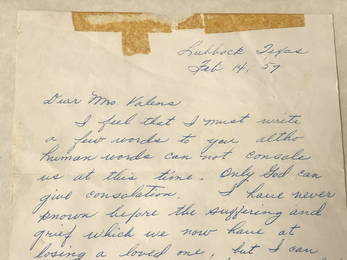 Lubbock Texas
Feb 14, 59
Dear Mrs Valens
I feel that I must write
a few words to you altho
human words can not console
us at this time. Only God can
give consolation. I have never
known before the suffering and
grief which we now have at
losing a loved one, but I can